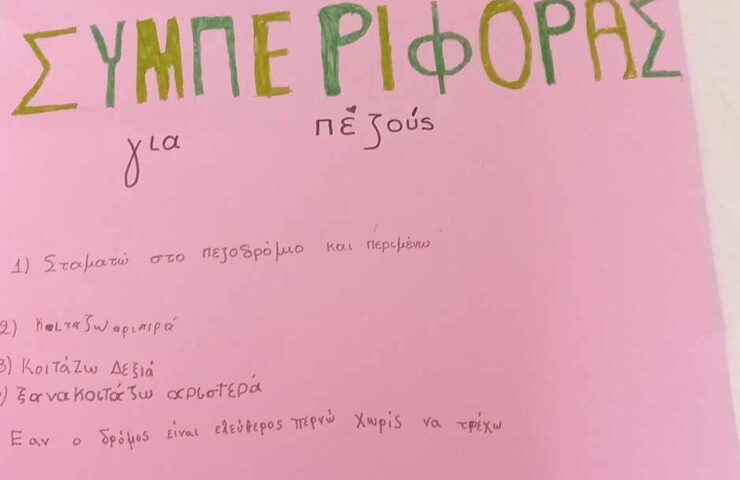 ΣΥΜΠΕΡΙΦΟΡΑΣ
για πέζούς
1) Σταματώ στο πεζοδρόμιο και περιμένω
2) Κοιταζω αριπερά
3) Κοιτάζω Δεξιά
) ξανακοιτάζω αριστερά
Εαν ο δρόμος είναι ελεύθερος περνώ χωρίς να τρέχω